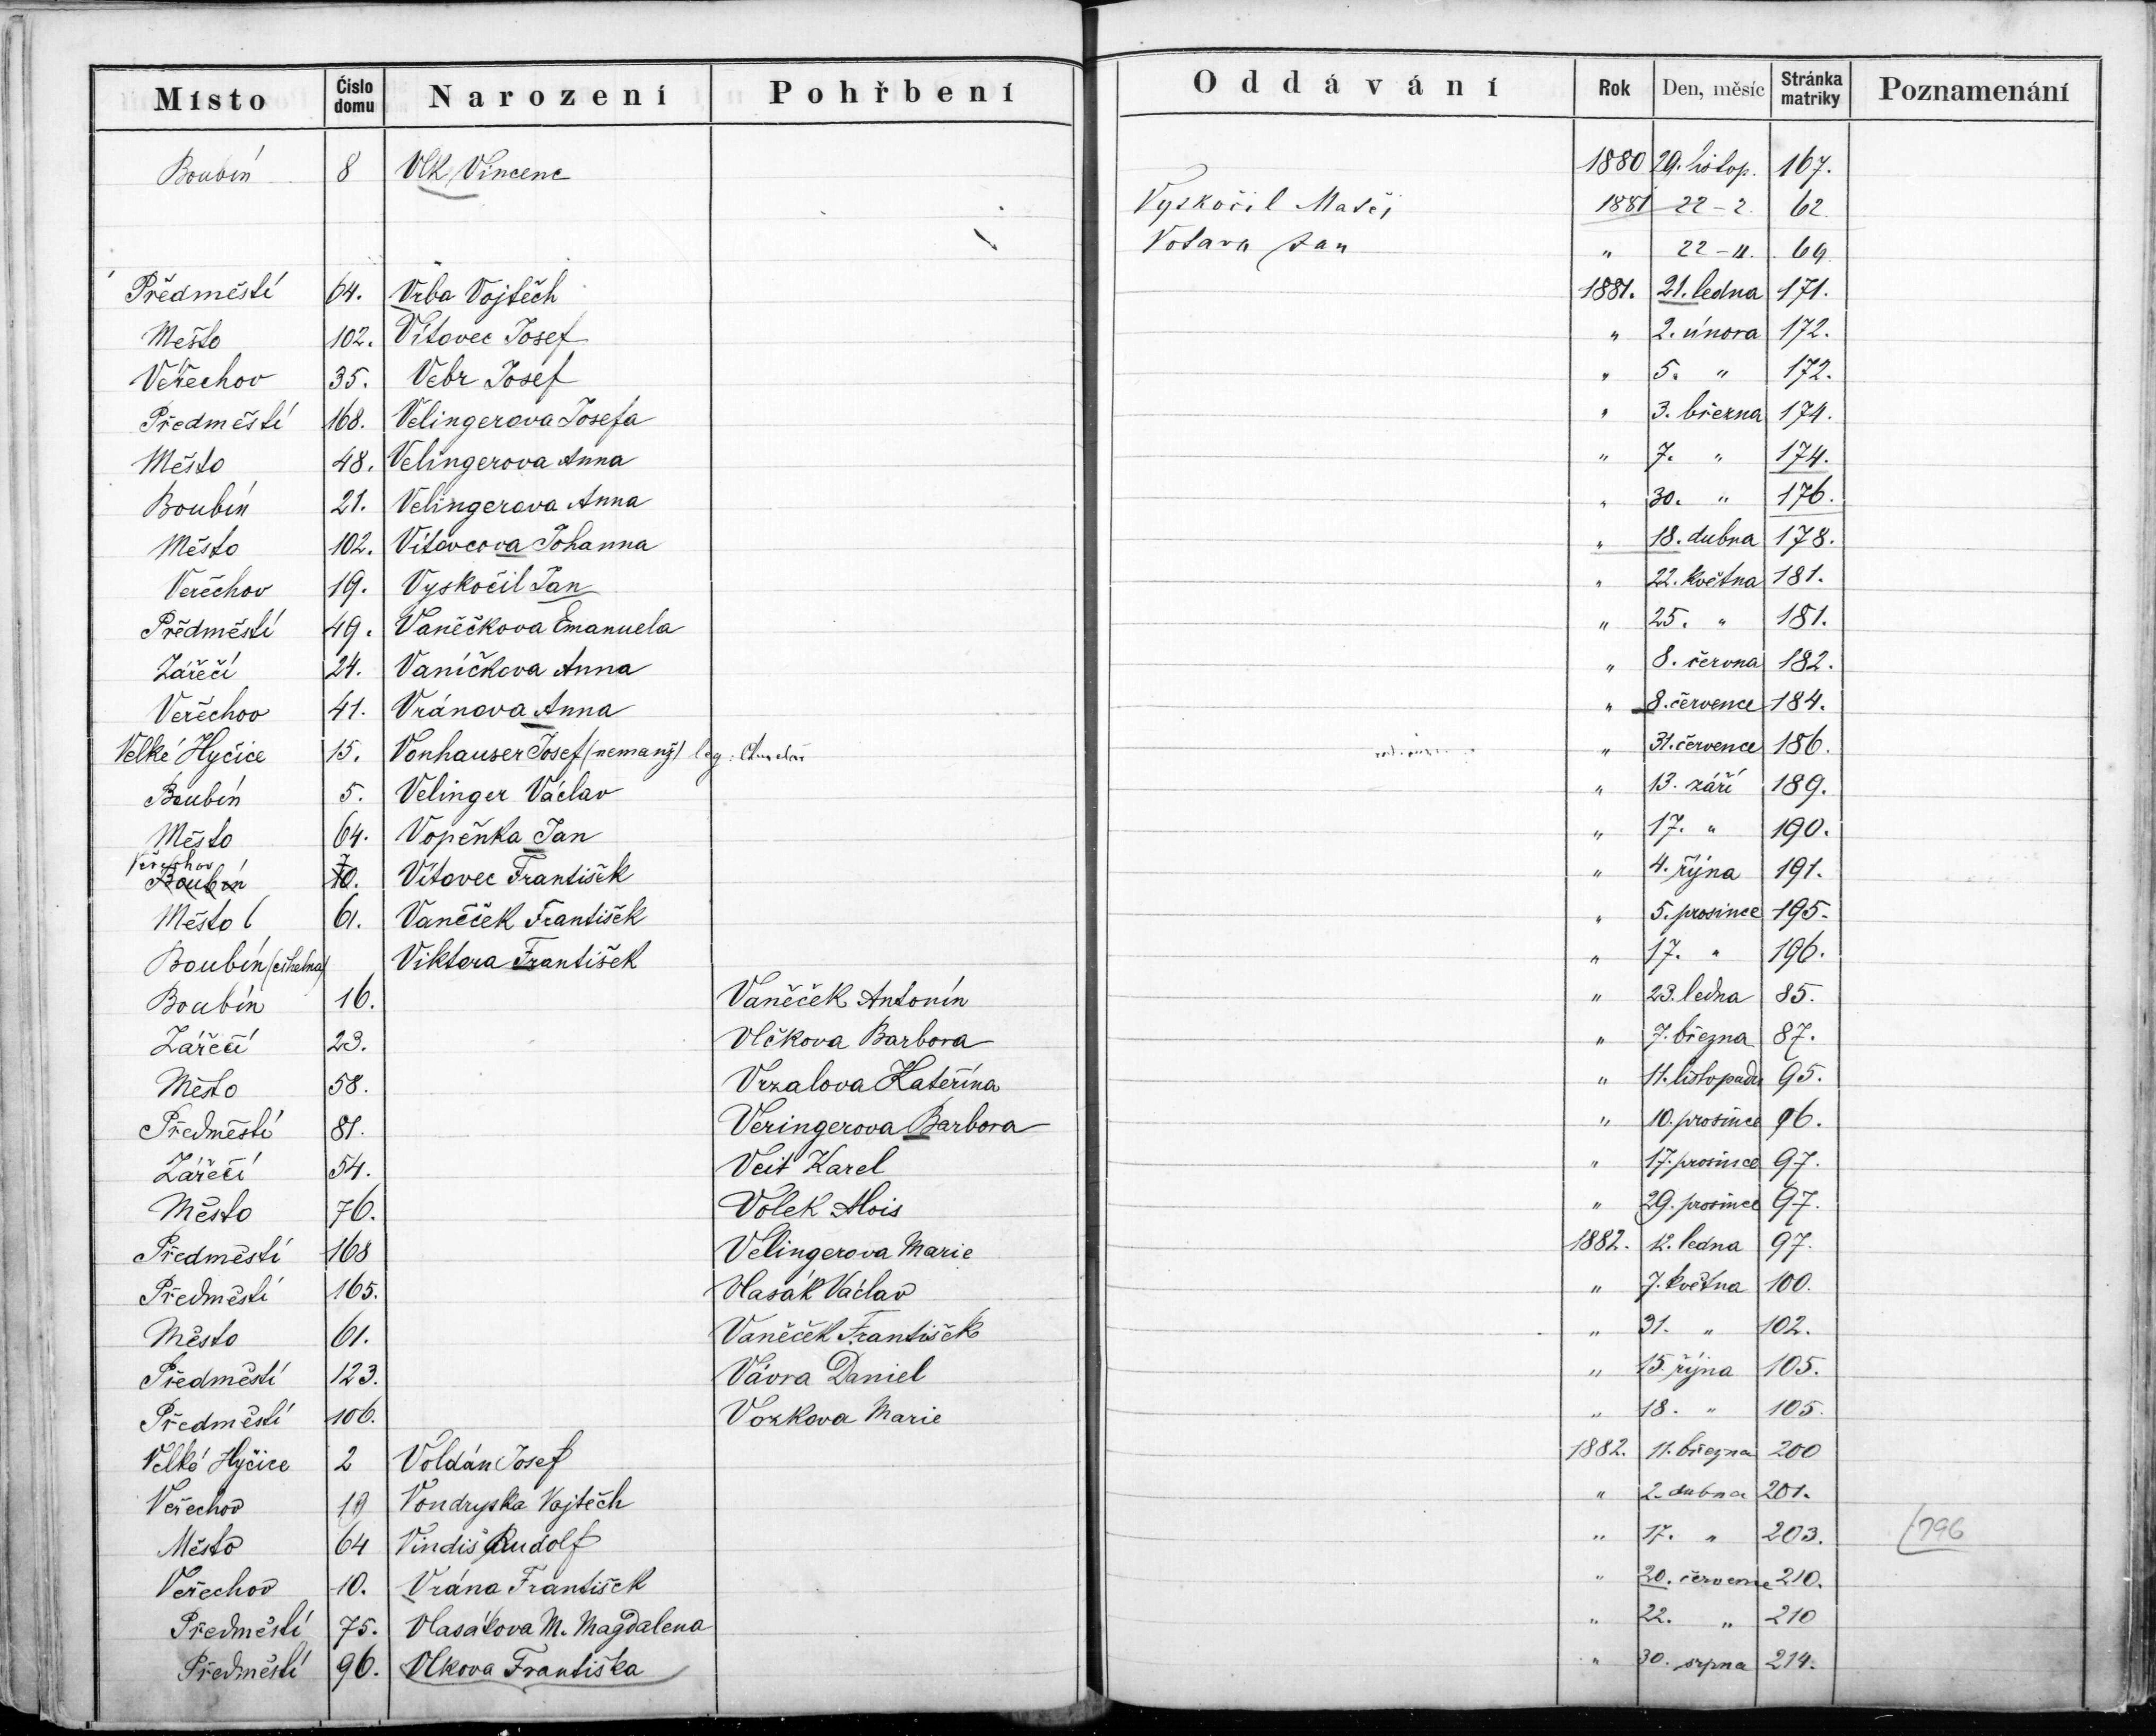 Místo Číslo domu Narození Pohřbení Oddávání Rok Den, měsíc Stránka matriky Poznamenání
Boubín 8 Vlk Vincenc 1880 29. listop. 167.
Vyskočil Matěj 1881 22-2. 62.
Votava Jan " 22-11. 69
Předměstí 64. Vrba Vojtěch 1881. 21. ledna 171.
Město 102. Vítovec Josef " 2. února 172.
Veřechov 35. Vebr Josef " 5. " 172.
Předměstí 168. Velingerova Josefa " 3. března 174.
Město 48. Velingerova Anna " 7. " 174.
Boubín 21. Velingerova Anna " 30. " 176.
Město 102. Vítovcova Johanna " 18. dubna 178.
Veřechov 19. Vyskočil Jan " 22. května 181.
Předměstí 49. Vaněčkova Emanuela " 25. " 181.
Zářečí 24. Vaníčkova Anna " 8. června 182.
Veřechov 41. Vránova Anna " 8. července 184.
Velké Hyčice 15. Vonhauser Josef (nemanž) leg. " 31. července 186.
Boubín 5. Velinger Václav " 13. září 189.
Město 64. Vopěnka Jan " 17. " 190.
Veřechov
Boubín 70. Vítovec František " 4. října 191.
Město 61. Vaněček František " 5. prosince 195.
Boubín (cihelna) Viktora František " 17. " 196.
Boubín 16. Vaněček Antonín " 23. ledna 85.
Zářečí 23. Vlčkova Barbora " 7. března 87.
Město 58. Vrzalova Kateřina " 11. listopadu 95.
Předměstí 81. Veringerova Barbora " 10. prosince 96.
Zářečí 54. Veit Karel " 17. prosince 97.
Město 76. Volek Alois " 29. prosince 97.
Předměstí 168 Velingerova Marie 1882. 12. ledna 97.
Předměstí 165. Vlasák Václav " 7. května 100.
Město 61. Vaněček František " 31. " 102.
Předměstí 123. Vávra Daniel " 15. října 105.
Předměstí 106. Vozkova Marie " 18. " 105.
Velké Hyčice 2 Voldán Josef 1882. 11. března 200
Veřechov 19 Vondryska Vojtěch " 2. dubna 201.
Město 64 Vindiš Rudolf " 17. " 203. 796
Veřechov 10. Vrána František " 20. července 210.
Předměstí 75. Vlasákova M. Magdalena " 22. " 210
Předměstí 96. Vlkova Františka " 30. srpna 214.